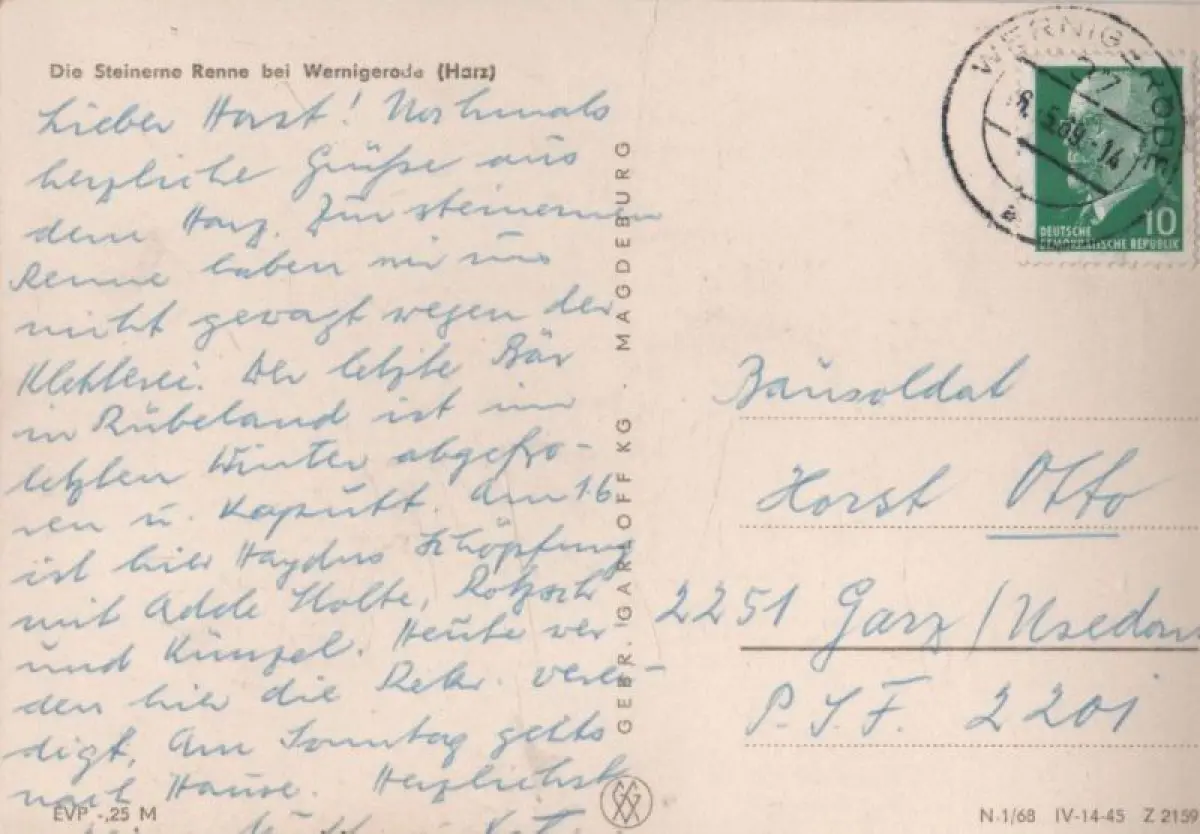 Die Steinerne Renne bei Wernigerode (Harz)
Lieber Horst! Nochmals
herzliche Grüße aus
dem Harz. Zur steinernen
Renne haben wir uns
nicht gewagt wegen der
Kletterei. Der letzte Bär
in Rübeland ist im
letzten Winter abgefro-
ren u. kaputt. Am 1.6.
ist hier Haydns Schöpfung
mit Adele Stolte, Rotzsch
und Künzel. Heute wer-
den hier die Rekr. verei-
digt. Am Sonntag gehts
nach Hause. Herzlichst
EVP -,25 M
GEBR. GARLOFF KG · MAGDEBURG
WERNIGERODE
37
6.-5.69.-14
a
10
DEUTSCHE
DEMOKRATISCHE REPUBLIK
Bausoldat
Horst Otto
2251 Garz/Usedom
P.S.F. 2201
N 1/68 IV-14-45 Z 2159